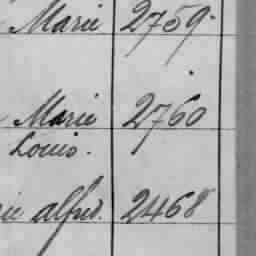 Marie 2759.
Marie 2760
Louis.
alfred. 2468